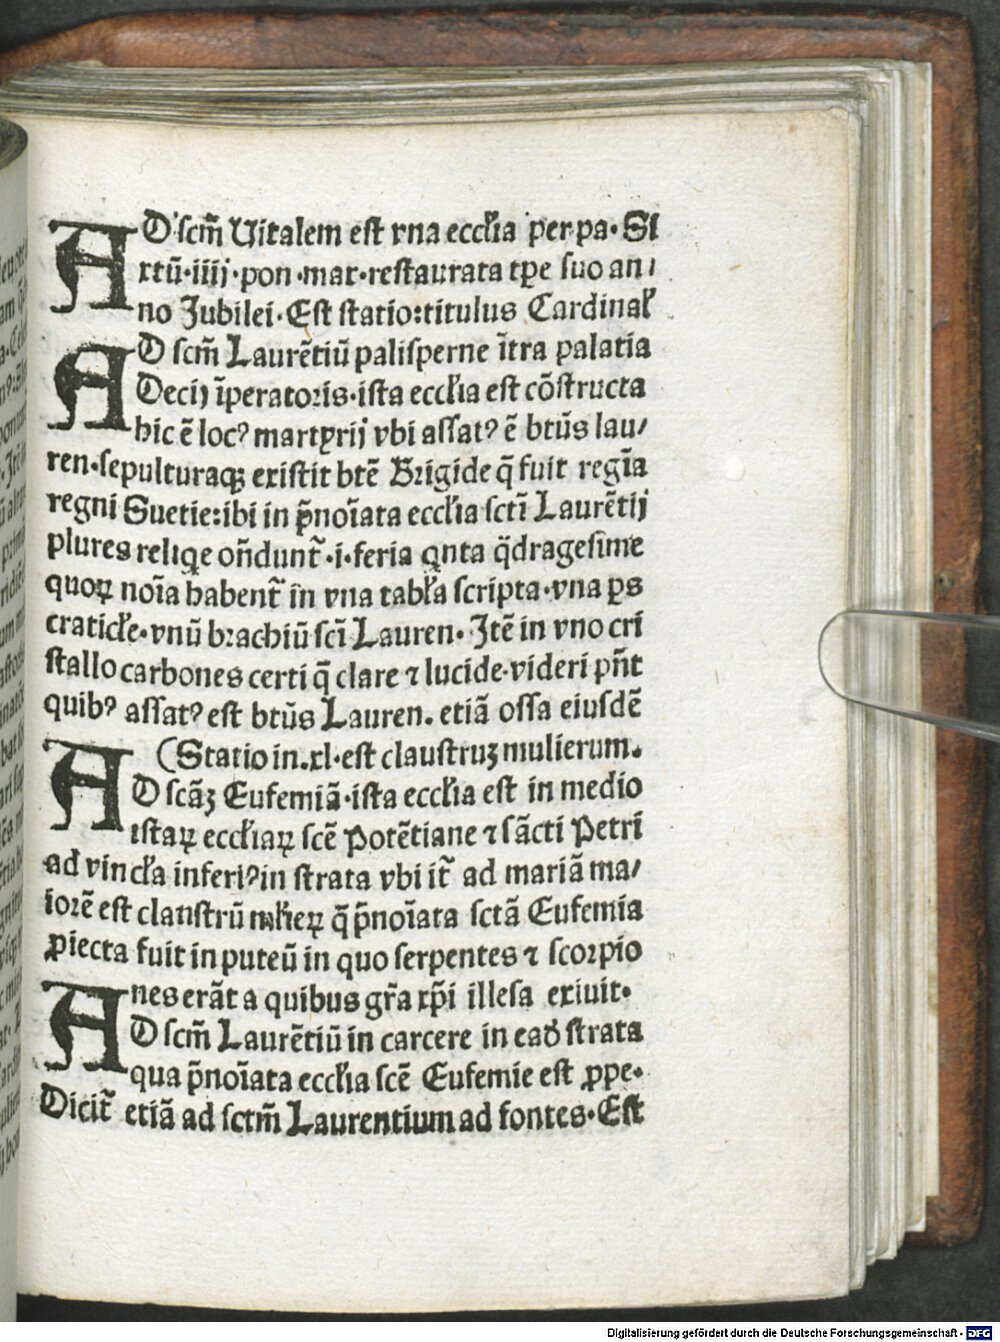 AD scm̃ Uitalem est vna eccl̃ia per pa. Si
xtũ .iiij. pon. mar. restaurata tp̱e suo an⸗
no Jubilei. Est statio: titulus Cardinal̃
AD scm̃ Laurẽtiũ palisperne ĩtra palatia
Decij ĩperatoris. ista eccl̃ia est cõstructa
hic ẽ locꝰ martyrij vbi assatꝰ ẽ btũs lau⸗
ren. sepulturaqꝫ existit btẽ Brigide q̃ fuit regĩa
regni Suetie: ibi in p̃noĩata eccl̃ia sctĩ Laurẽtij
plures reliq̃e oñdunt̃ .i. feria qnta q̃dragesime
quoꝝ noĩa habent̃ in vna tabl̃a scripta. vna p̱s
craticl̃e. vnũ brachiũ scĩ Lauren. Itẽ in vno cri
stallo carbones certi q̃ clare ⁊ lucide. videri pñt
quibꝰ assatꝰ est btũs Lauren. etiã ossa eiusdẽ
(Statio in .xl. est claustruꝫ mulierum.
AD scãꝫ Eufemiã. ista eccl̃ia est in medio
istaꝝ eccl̃iaꝝ scẽ Potẽtiane ⁊ sãcti Petri
ad vincl̃a inferiꝰ in strata vbi it̃ ad mariã ma⸗
iorẽ est claustrũ ml̃ieꝝ q̃ p̃noĩata sctã Eufemia
ꝓiecta fuit in puteũ in quo serpentes ⁊ scorpio
nes erãt a quibus gr̃a xp̃i illesa exiuit.
AD scm̃ Laurẽtiũ in carcere in ead̃ strata
qua p̃noĩata eccl̃ia scẽ Eufemie est ꝓpe.
Dicit̃ etiã ad sctm̃ Laurentium ad fontes. Est
Digitalisierung gefördert durch die Deutsche Forschungsgemeinschaft - DFG